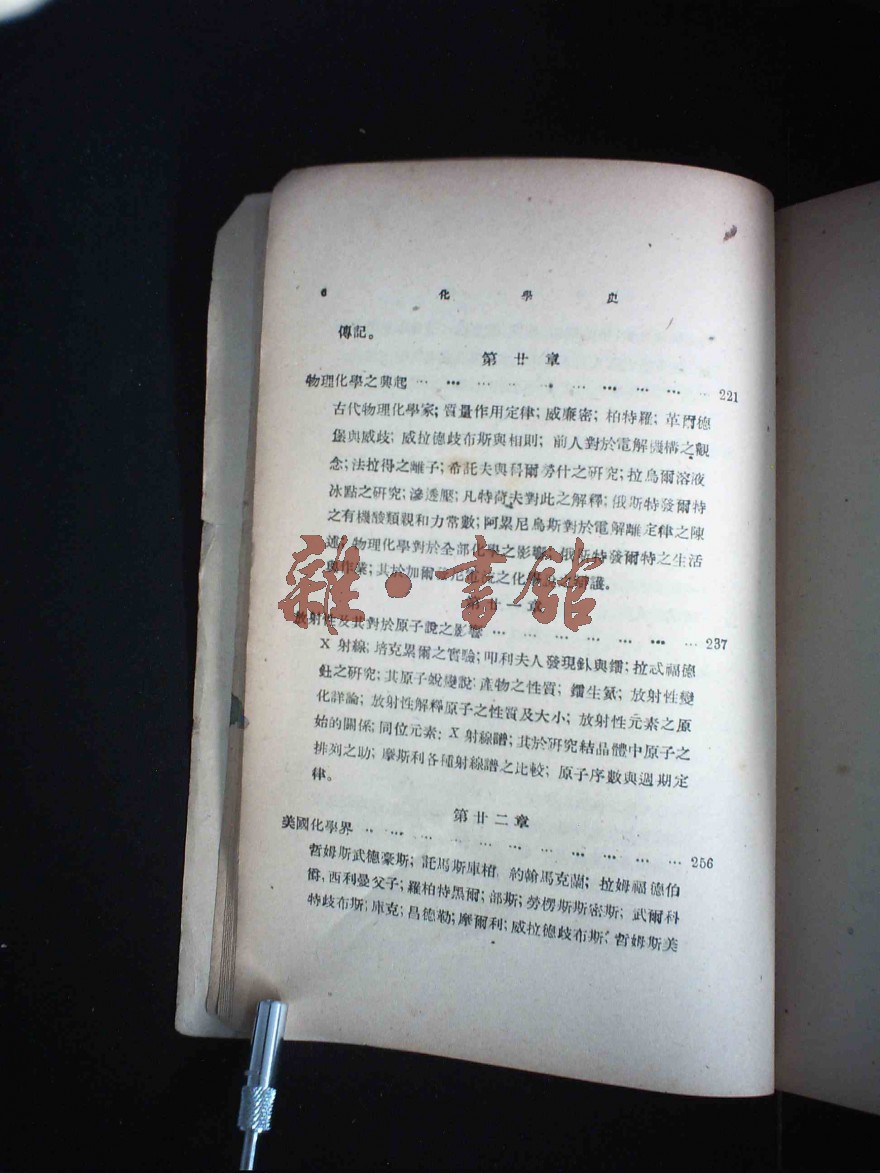 6 化學史
傳記。
第廿章
物理化學之興起 … … … … … … … … … … 221
古代物理化學家;質量作用定律;威廉密;柏特羅;革爾德
堡與威歧;威拉德歧布斯與相則;前人對於電解機構之觀
念;法拉得之離子;希託夫與科爾勞什之研究;拉烏爾溶液
冰點之研究;滲透壓;凡特荷夫對此之解釋;俄斯特發爾特
之有機酸類親和力常數;阿累尼烏斯對於電解離定律之陳
述;物理化學對於全部化學之影響;俄斯特發爾特之生活
與作業;其於加爾 之化學
雜·書館
第廿一章
放射性及其對於原子說之影響 … … … … … … … 237
X 射線;培克累爾之實驗;叩利夫人發現釙與鐳;拉忒福德
釷之研究;其原子蛻變說;產物之性質;鐳生氦;放射性變
化詳論;放射性解釋原子之性質及大小;放射性元素之原
始的關係;同位元素;X 射線譜;其於研究結晶體中原子之
排列之助;摩斯利各種射線譜之比較;原子序數與週期定
律。
第廿二章
美國化學界 … … … … … … … … … … … 256
哲姆斯武德豪斯;託馬斯庫柏,約翰馬克蘭;拉姆福德伯
爵,西利曼父子;羅柏特黑爾;部斯;勞楞斯斯密斯;武爾科
特歧布斯;庫克;昌德勒;摩爾利;威拉德歧布斯;哲姆斯美